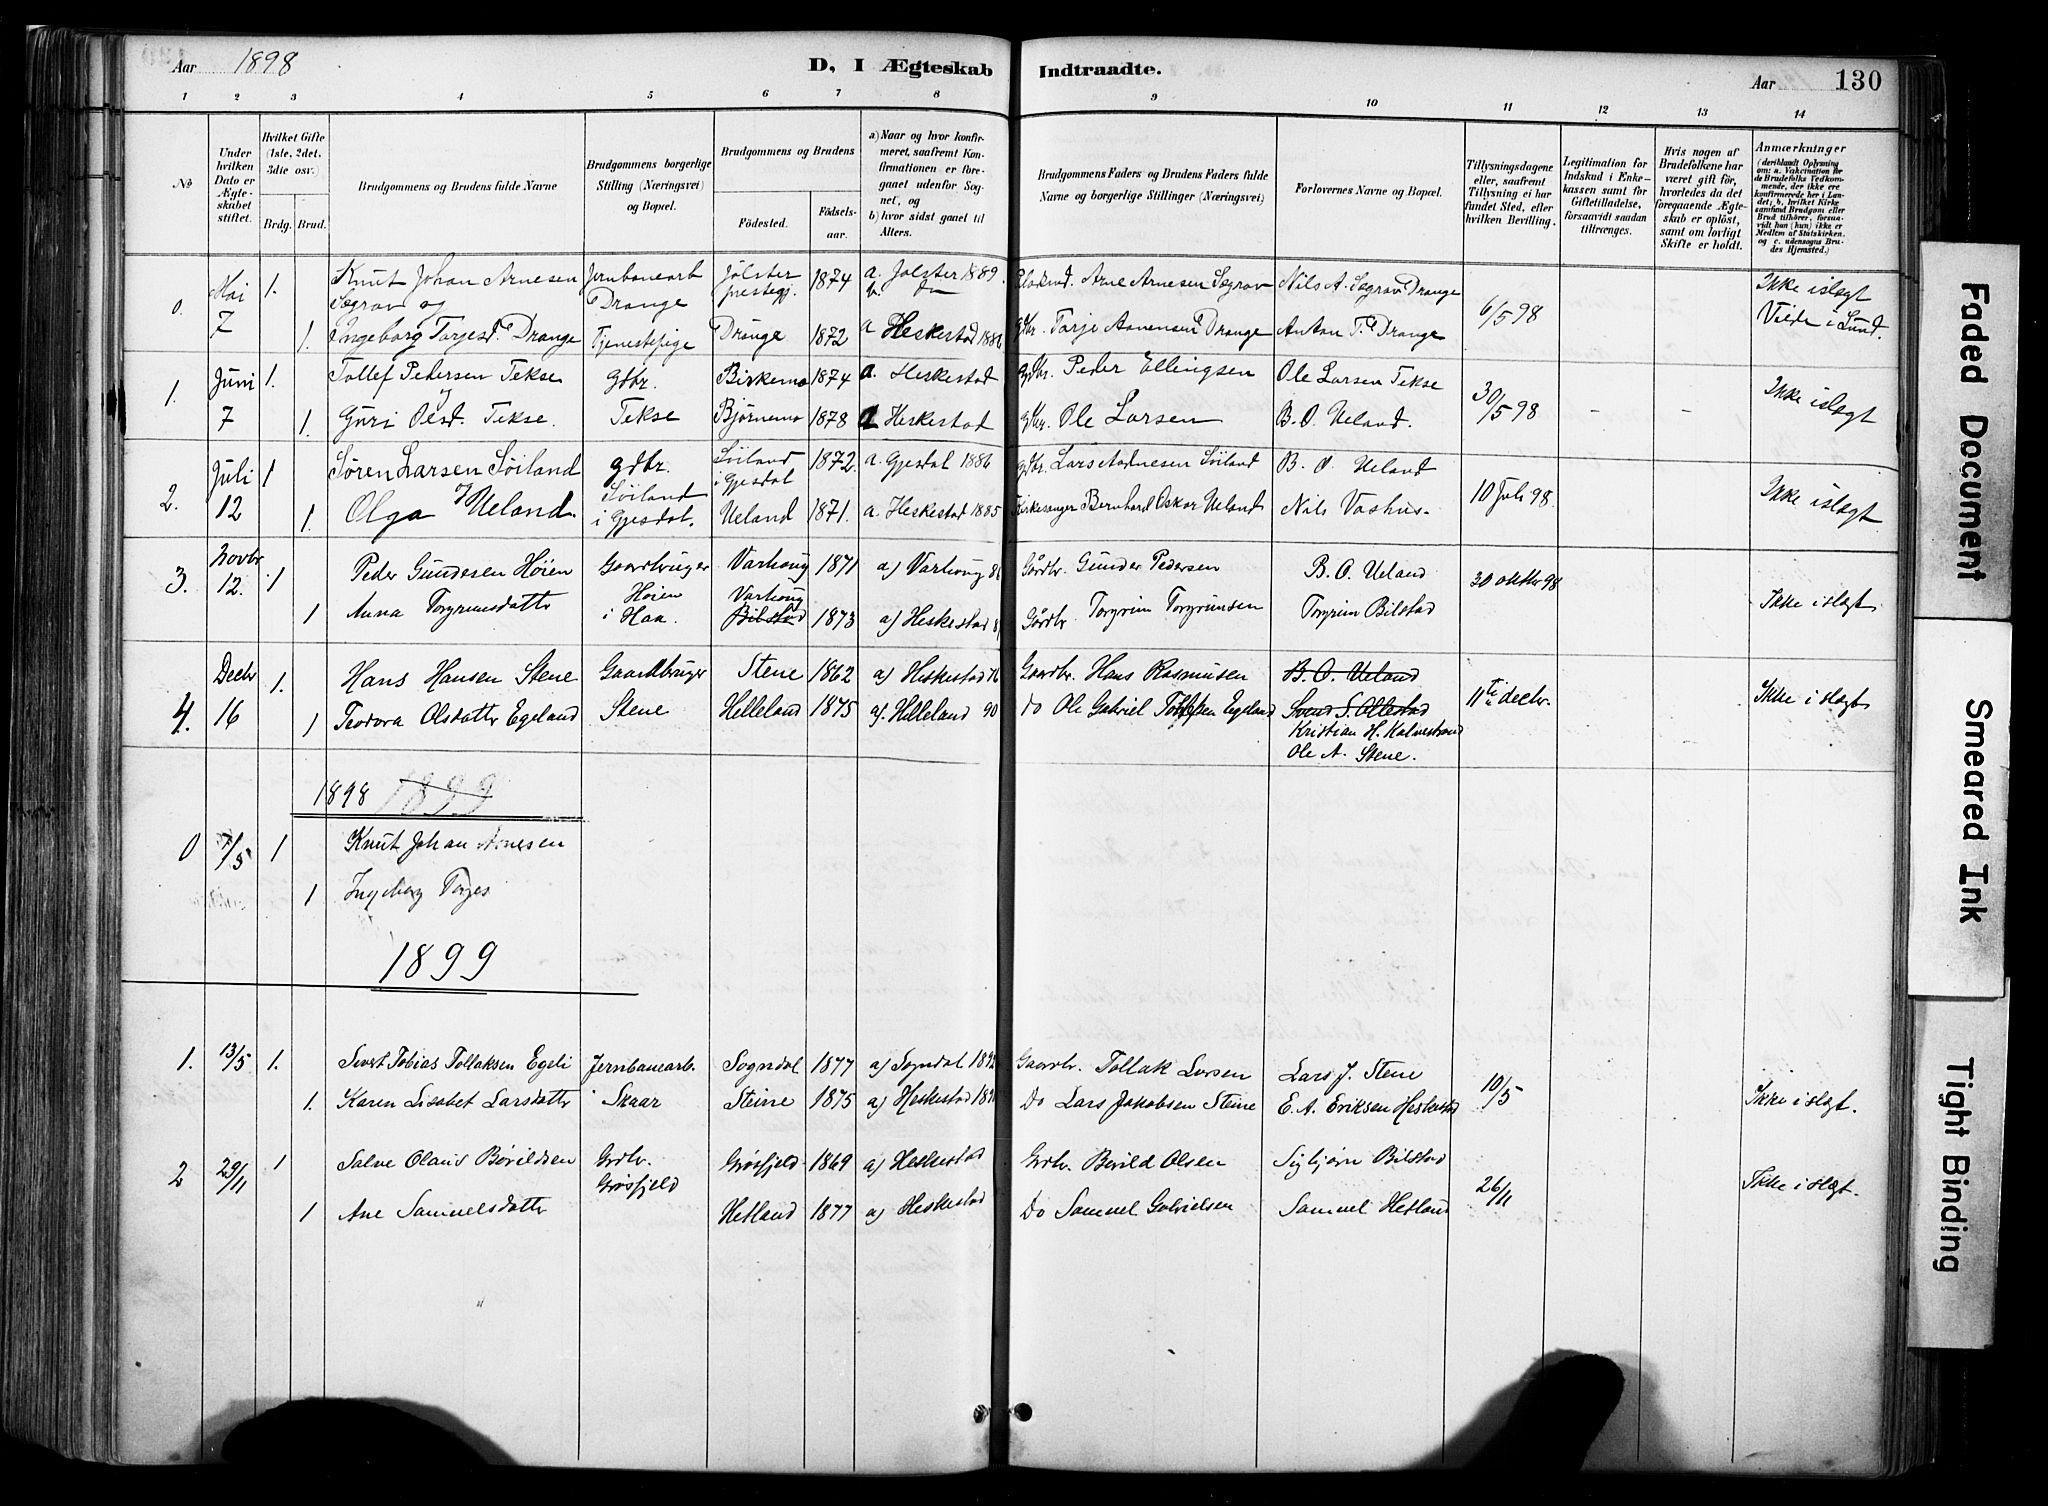 Aar 1898
D, I Ægteskab Indtraadte.
Aar 130
1 2 3 4 5 6 7 8 9 10 11 12 13 14
No
Under hvilken Dato er Ægteskabet stiftet.
Hvilket Gifte (1ste, 2det, 3die osv.)
Brdg. Brud.
Brudgommens og Brudens fulde Navne
Brudgommens borgerlige Stilling (Næringsvei) og Bopæl.
Brudgommens og Brudens
Fødested.
Fødselsaar.
a) Naar og hvor konfirmeret, saafremt Konfirmationen er foregaaet udenfor Sognet, og
b) hvor sidst gaaet til Alters.
Brudgommens Faders og Brudens Faders fulde Navne og borgerlige Stillinger (Næringsvei)
Forlovernes Navne og Bopæl.
Tillysningsdagene eller, saafremt Tillysning ei har fundet Sted, efter hvilken Bevilling.
Legitimation for Indskud i Enkekassen samt for Giftetilladelse, forsaavidt saadan tiltrænges.
Hvis nogen af Brudefolkene har været gift før, hvorledes da det foregaaende Ægteskab er opløst, samt om lovligt Skifte er holdt.
Anmærkninger (deriblandt Oplysning om: a. Vakcination for de Brudefolks Vedkommende, der ikke ere konfirmerede her i Landet; b, hvilket Kirkesamfund Brudgom eller Brud tilhører, forsaavidt han (hun) ikke er Medlem af Statskirken, og c. udensogns Brudes Hjemsted.)
0. Mai 7 1. Knut Johan Arnesen Jernbanearb Jølster 1874 a. Jølster 1889. Arne Arnesen Søgrav Nils A. Søgrav Drange 6/5 98 Ikke islægt
Søgrav og Drange prestegj. b. do
1. Ingeborg Torjesd. Drange Tjenestepige Drange 1872 a Heskestad 1886 gdbr. Torje Aanensen Drange Anton T. Drange Viede i Lund.
1. Juni 7 1. Tollef Pedersen Tekse gdbr. Birkemo 1874 a. Heskestad gdbr. Peder Ellingsen Ole Larsen Tekse 30/5 98 - - Ikke islægt
1. Guri Olsd. Tekse. Tekse Bjørnemo 1878 a Heskestad gdbr. Ole Larsen B. O. Ueland.
2. Juli 12 1 Søren Larsen Søiland gdbr. Søiland i Gjesdal 1872. a. Gjesdal 1886 gdbr. Lars Aadnesen Søiland B. O. Ueland 10 Juli 98. Ikke islægt
1. Olga Ueland. Søiland i Gjesdal. Ueland 1871. a. Heskestad 1885 Kirkesanger Bernhard Oskar Ueland Nils Vashus.
3. Novbr 12. 1 Peder Gundesen Høien Gaardbruger Varhoug 1871 a) Varhoug 86 Gårdbr. Gunder Pedersen B. O. Ueland 30 oktbr 98 Ikke islægt
1 Anna Torgrimsdatter Høien i Haa. Varhoug Bilstad 1873 a) Heskestad Gårdbr. Torgrim Torgrimsen Torgrim Bilstad
4. Decbr 16 1. Hans Hansen Stene Gaardbruger Stene 1862 a) Heskestad 76 Gaardbr. Hans Rasmusen B. O. Ueland 11te decbr. Ikke islægt
1 Teodora Olsdatter Egeland Stene Helleland 1875 a). Helleland 90 do Ole Gabriel Tollefsen Egeland Svend S. Ollestad
Kristian H. Kalvestrand
Ole A. Stene.
1898 1899
0 7/5 1 Knut Johan Arnesen
1 Ingeborg Torjes
1899
1. 13/5 1. Sivert Tobias Tollaksen Egeli Jernbanearb. Sogndal 1877 a) Sogndal 1892 Gaardbr. Tollak Larsen Lars J. Stene 10/5 Ikke islægt.
1. Karen Lisabet Larsdatter Skaar Steine 1875 a) Heskestad Do Lars Jakobsen Steine E. A. Eriksen Heskestad
2 29/11 1 Salve Olaus Bøvildsen Grdbr. Grøsfjeld Grøsfjeld 1869 a) Heskestad Grdbr. Bøvild Olsen Sigbjørn Bilstad 26/11 Ikke islægt.
1 Ane Samuelsdatter Hetland 1877 a) Heskestad Do Samuel Gabrielsen Samuel Hetland
Faded Document
Smeared Ink
Tight Binding